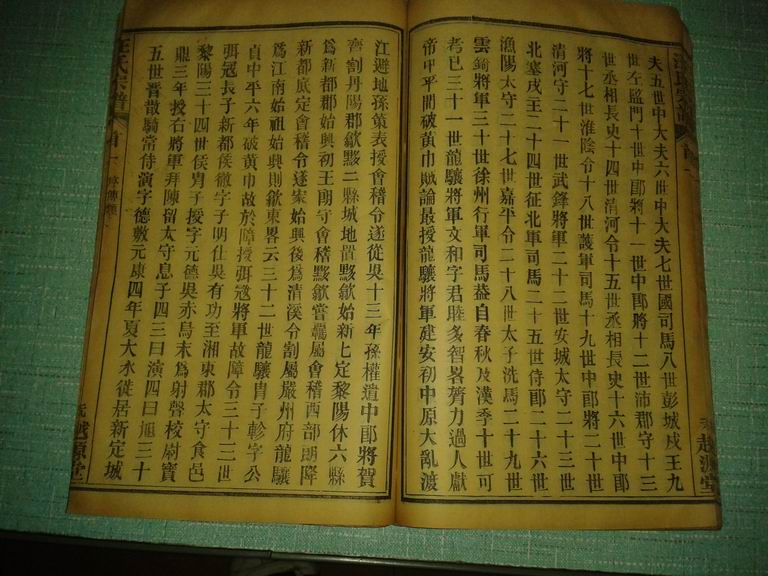 夫五世中大夫六世中大夫七世國司馬八世彭城戍王九
世左監門十世中郎將十一世中郎將十二世沛郡守十三
世丞相長史十四世清河令十五世丞相長史十六世中郎
將十七世淮陰令十八世護軍司馬十九世中郎將二十世
清河守二十一世武鋒將軍二十二世安城太守二十三世
北塞戍主二十四世征北軍司馬二十五世侍郎二十六世
漁陽太守二十七世嘉平令二十八世太子洗馬二十九世
雲錡將軍三十世徐州行軍司馬葢自春秋及漢季十世可
考巳三十一世龍驤將軍文和字君睦多智畧膂力過人獻
帝中平間破黃巾賊論最授龍驤將軍建安初中原大亂渡
江避地孫策表授會稽令遂從吳十三年孫權遣中郎將賀
齊割丹陽郡歙黟二縣城地置黟歙始新上定黎陽休六縣
爲新都郡始興初王朗守會稽黟歙嘗屬會稽西部朗降
新都底定會稽令遂家始興後爲清溪令割屬嚴州府龍驤
爲江南始祖始興則歙東畧云三十二世龍驤冑子軫字公
貞中平六年破黃巾故於障授弭冦將軍故障令三十三世
弭冦長子新都侯徹字子明仕吳有功至湘東郡太守食邑
黎陽三十四世侯冑子授字元德吳赤烏末爲射聲校尉寶
鼎三年授右將軍拜陳留太守息子四三曰演四曰旭三十
五世晉散騎常侍演字德敷元康四年夏大水徙居新定城
汪氏宗譜
首一
越源堂